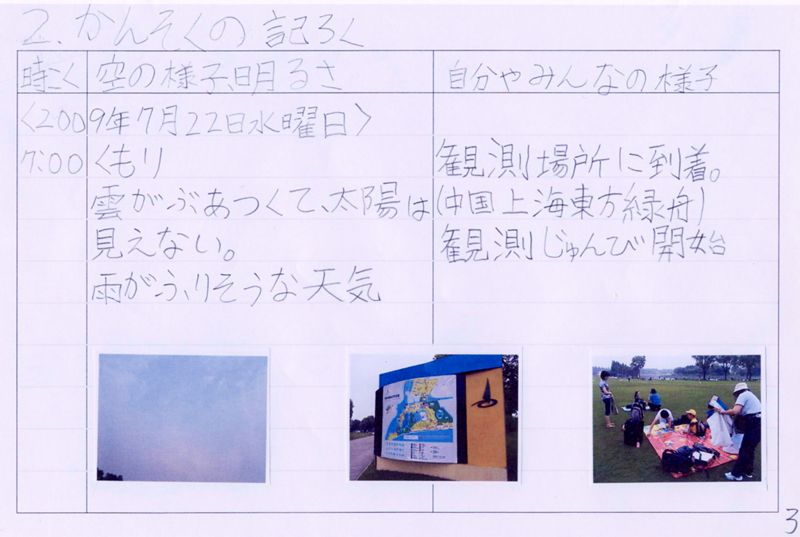 2.かんそくの記ろく
時こく 空の様子、明るさ 自分やみんなの様子
〈2009年7月22日水曜日〉
7:00 くもり 観測場所に到着。
雲がぶあつくて、太陽は (中国上海東方緑舟)
見えない。 観測じゅんび開始
雨がふりそうな天気
3